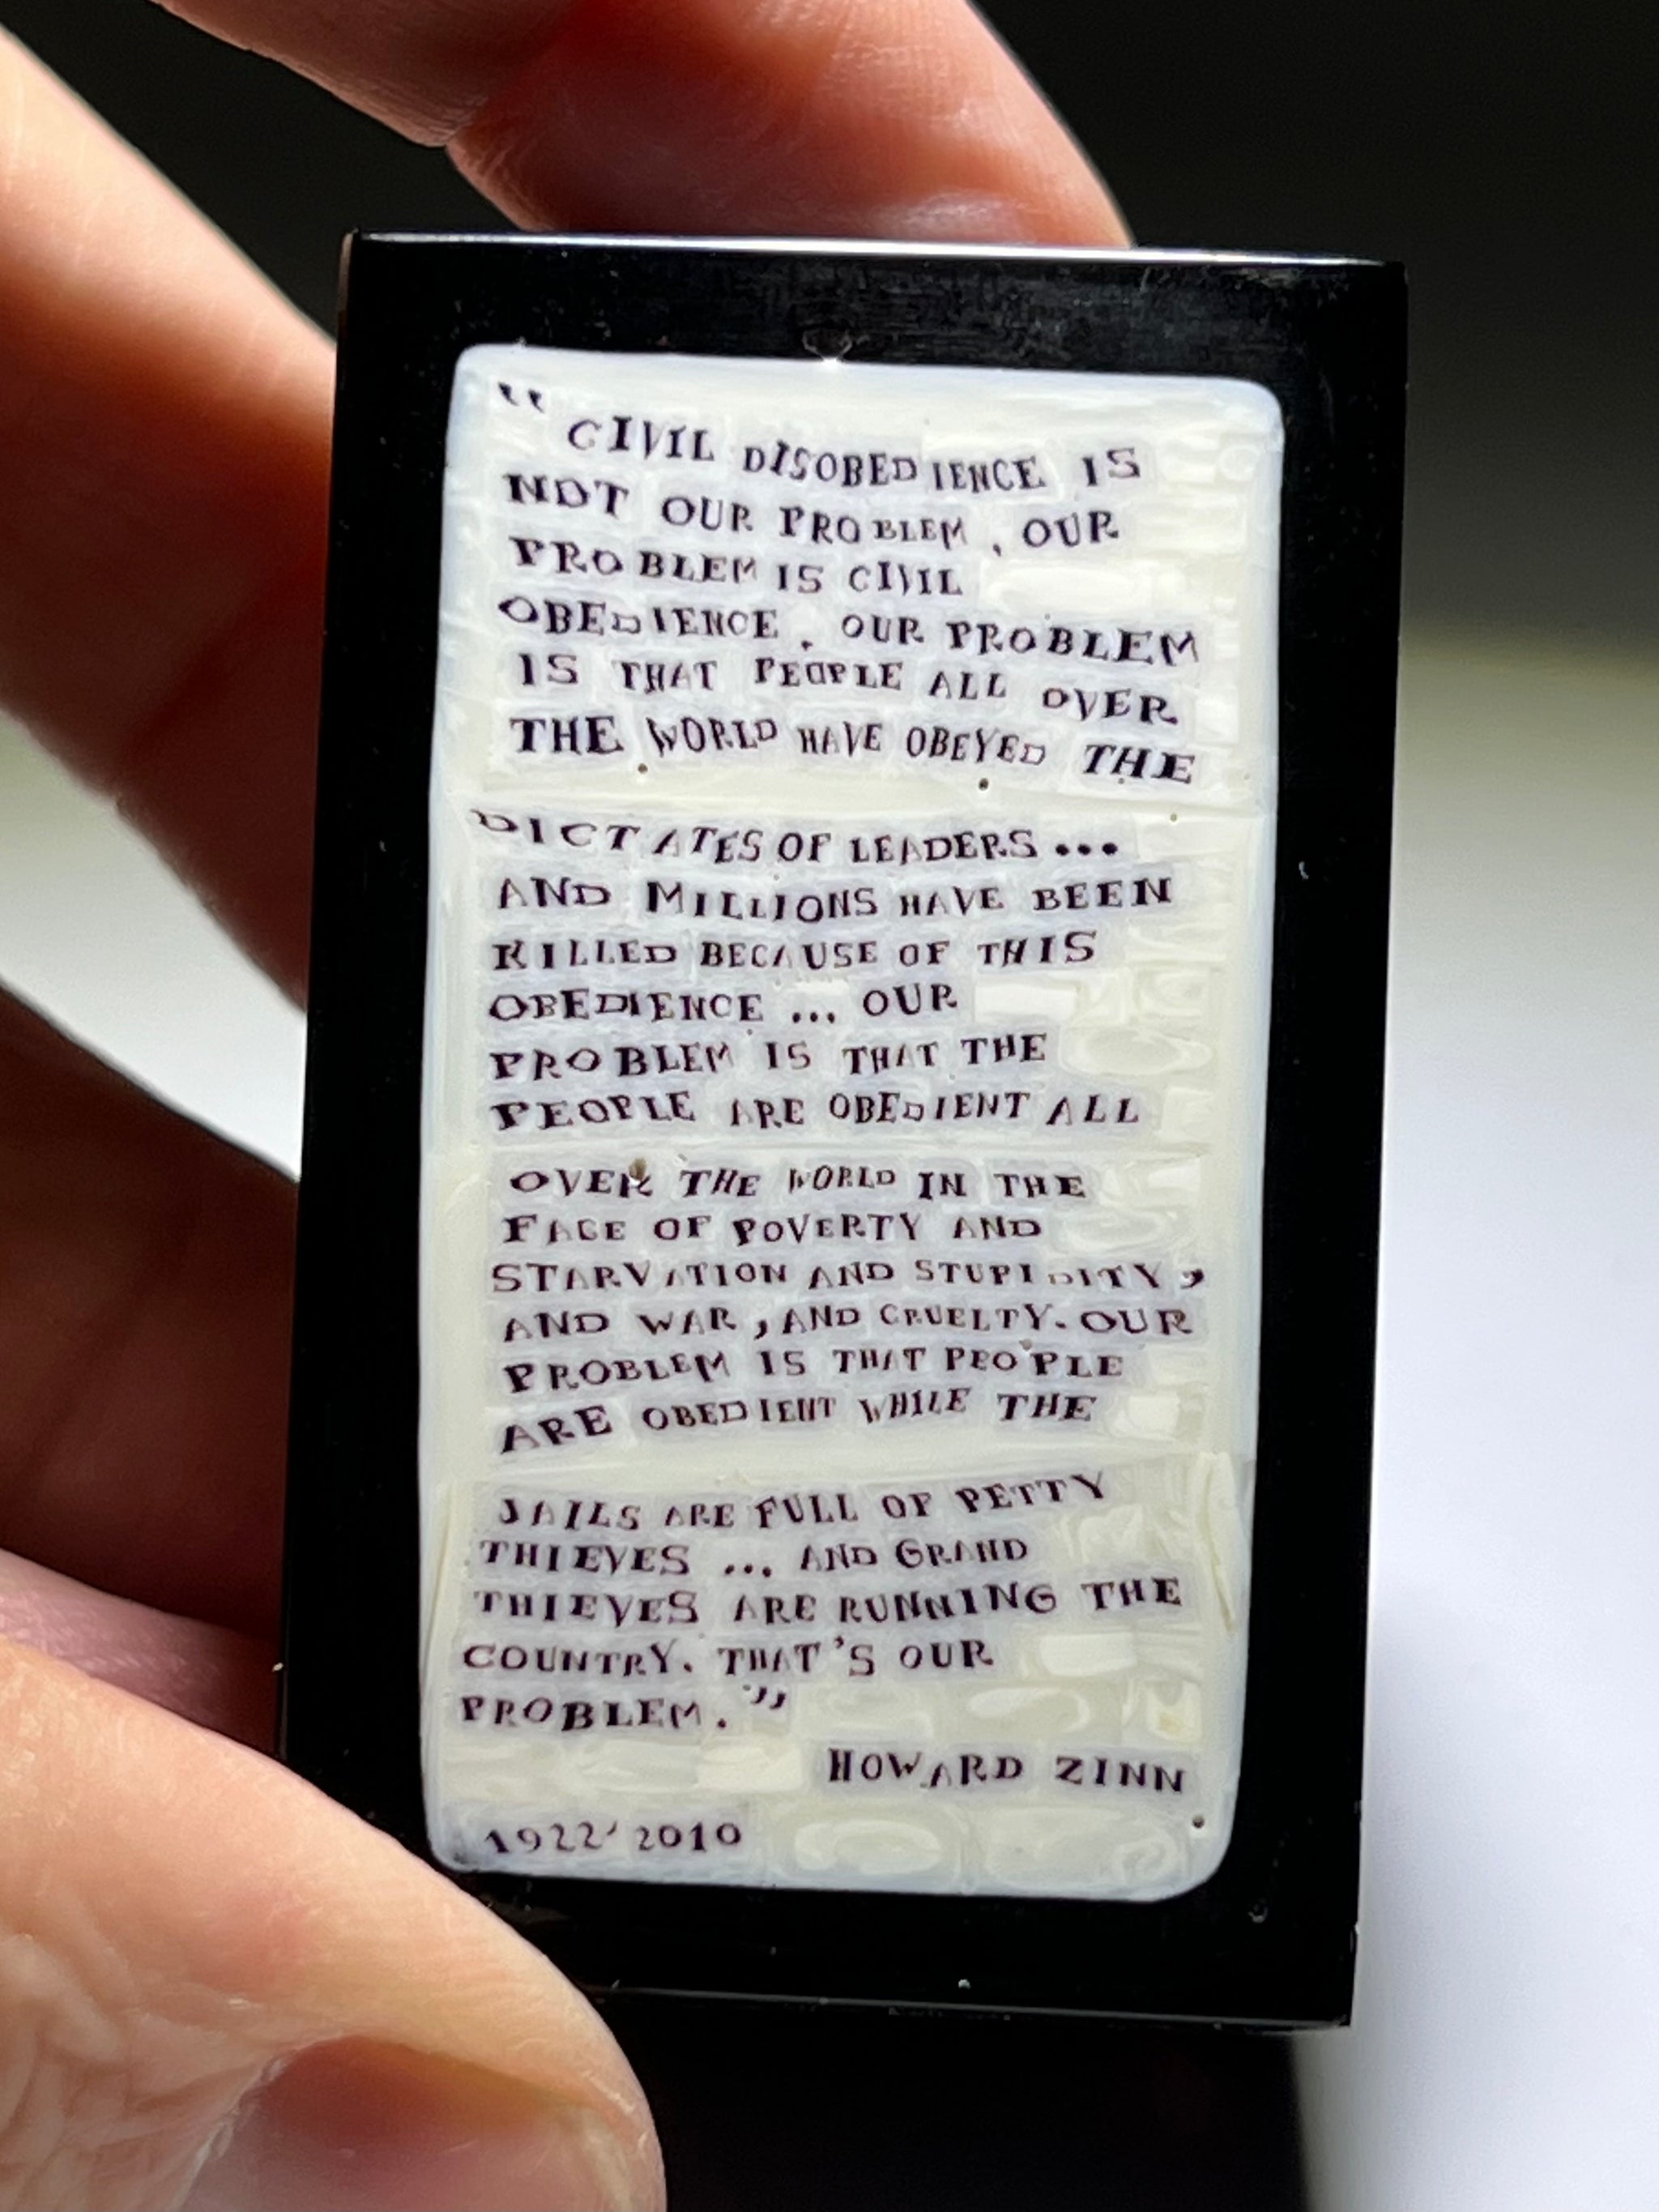 “ CIVIL DISOBEDIENCE IS
NOT OUR PROBLEM, OUR
PROBLEM IS CIVIL
OBEDIENCE. OUR PROBLEM
IS THAT PEOPLE ALL OVER
THE WORLD HAVE OBEYED THE
DICTATES OF LEADERS...
AND MILLIONS HAVE BEEN
KILLED BECAUSE OF THIS
OBEDIENCE ... OUR
PROBLEM IS THAT THE
PEOPLE ARE OBEDIENT ALL
OVER THE WORLD IN THE
FACE OF POVERTY AND
STARVATION AND STUPIDITY,
AND WAR, AND CRUELTY. OUR
PROBLEM IS THAT PEOPLE
ARE OBEDIENT WHILE THE
JAILS ARE FULL OF PETTY
THIEVES ... AND GRAND
THIEVES ARE RUNNING THE
COUNTRY. THAT'S OUR
PROBLEM.”
HOWARD ZINN
1922-2010